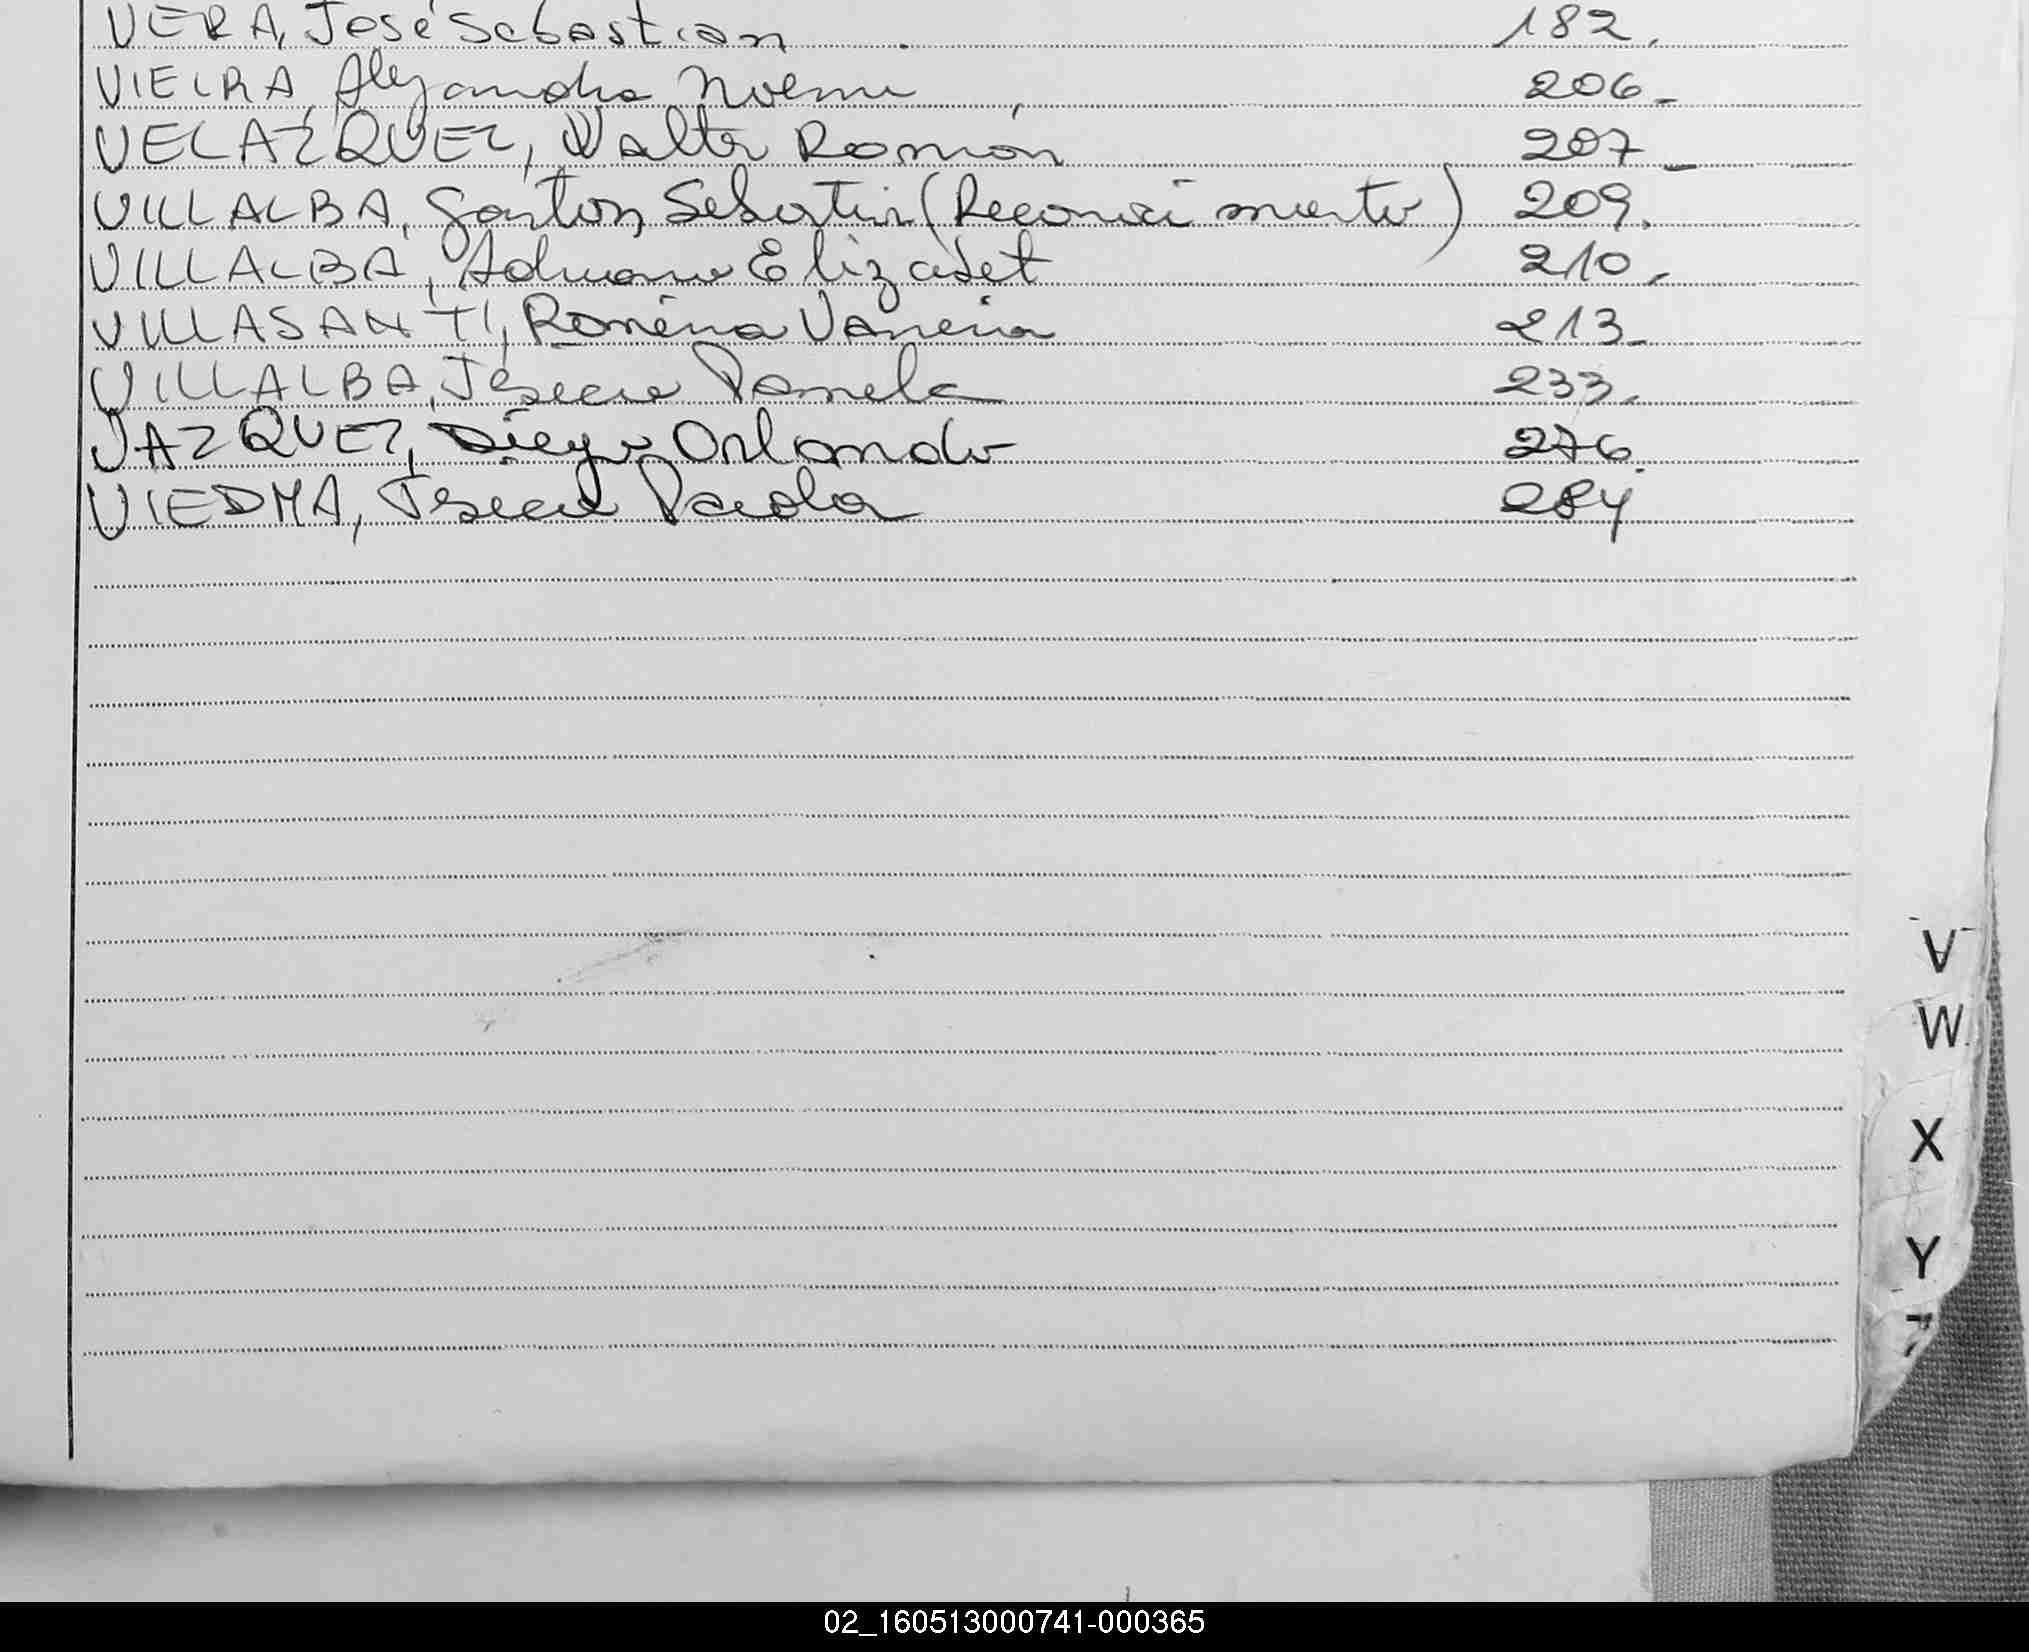 VERA, José Sebastian 182.
VIEIRA, Alejandra Noemi 206-
VELAZQUEZ, Walter Ramón 207-
VILLALBA, Gastón Sebastian (Reconoci miento) 209.
VILLALBA, Adriana Elizabet 210.
VILLASANTI, Romina Vanesa 213-
VILLALBA, Jesica Pamela 233.
VAZQUEZ, Diego Orlando 276.
VIEDMA, Jesica Paola 284
V
W
X
Y
Z
02_160513000741-000365